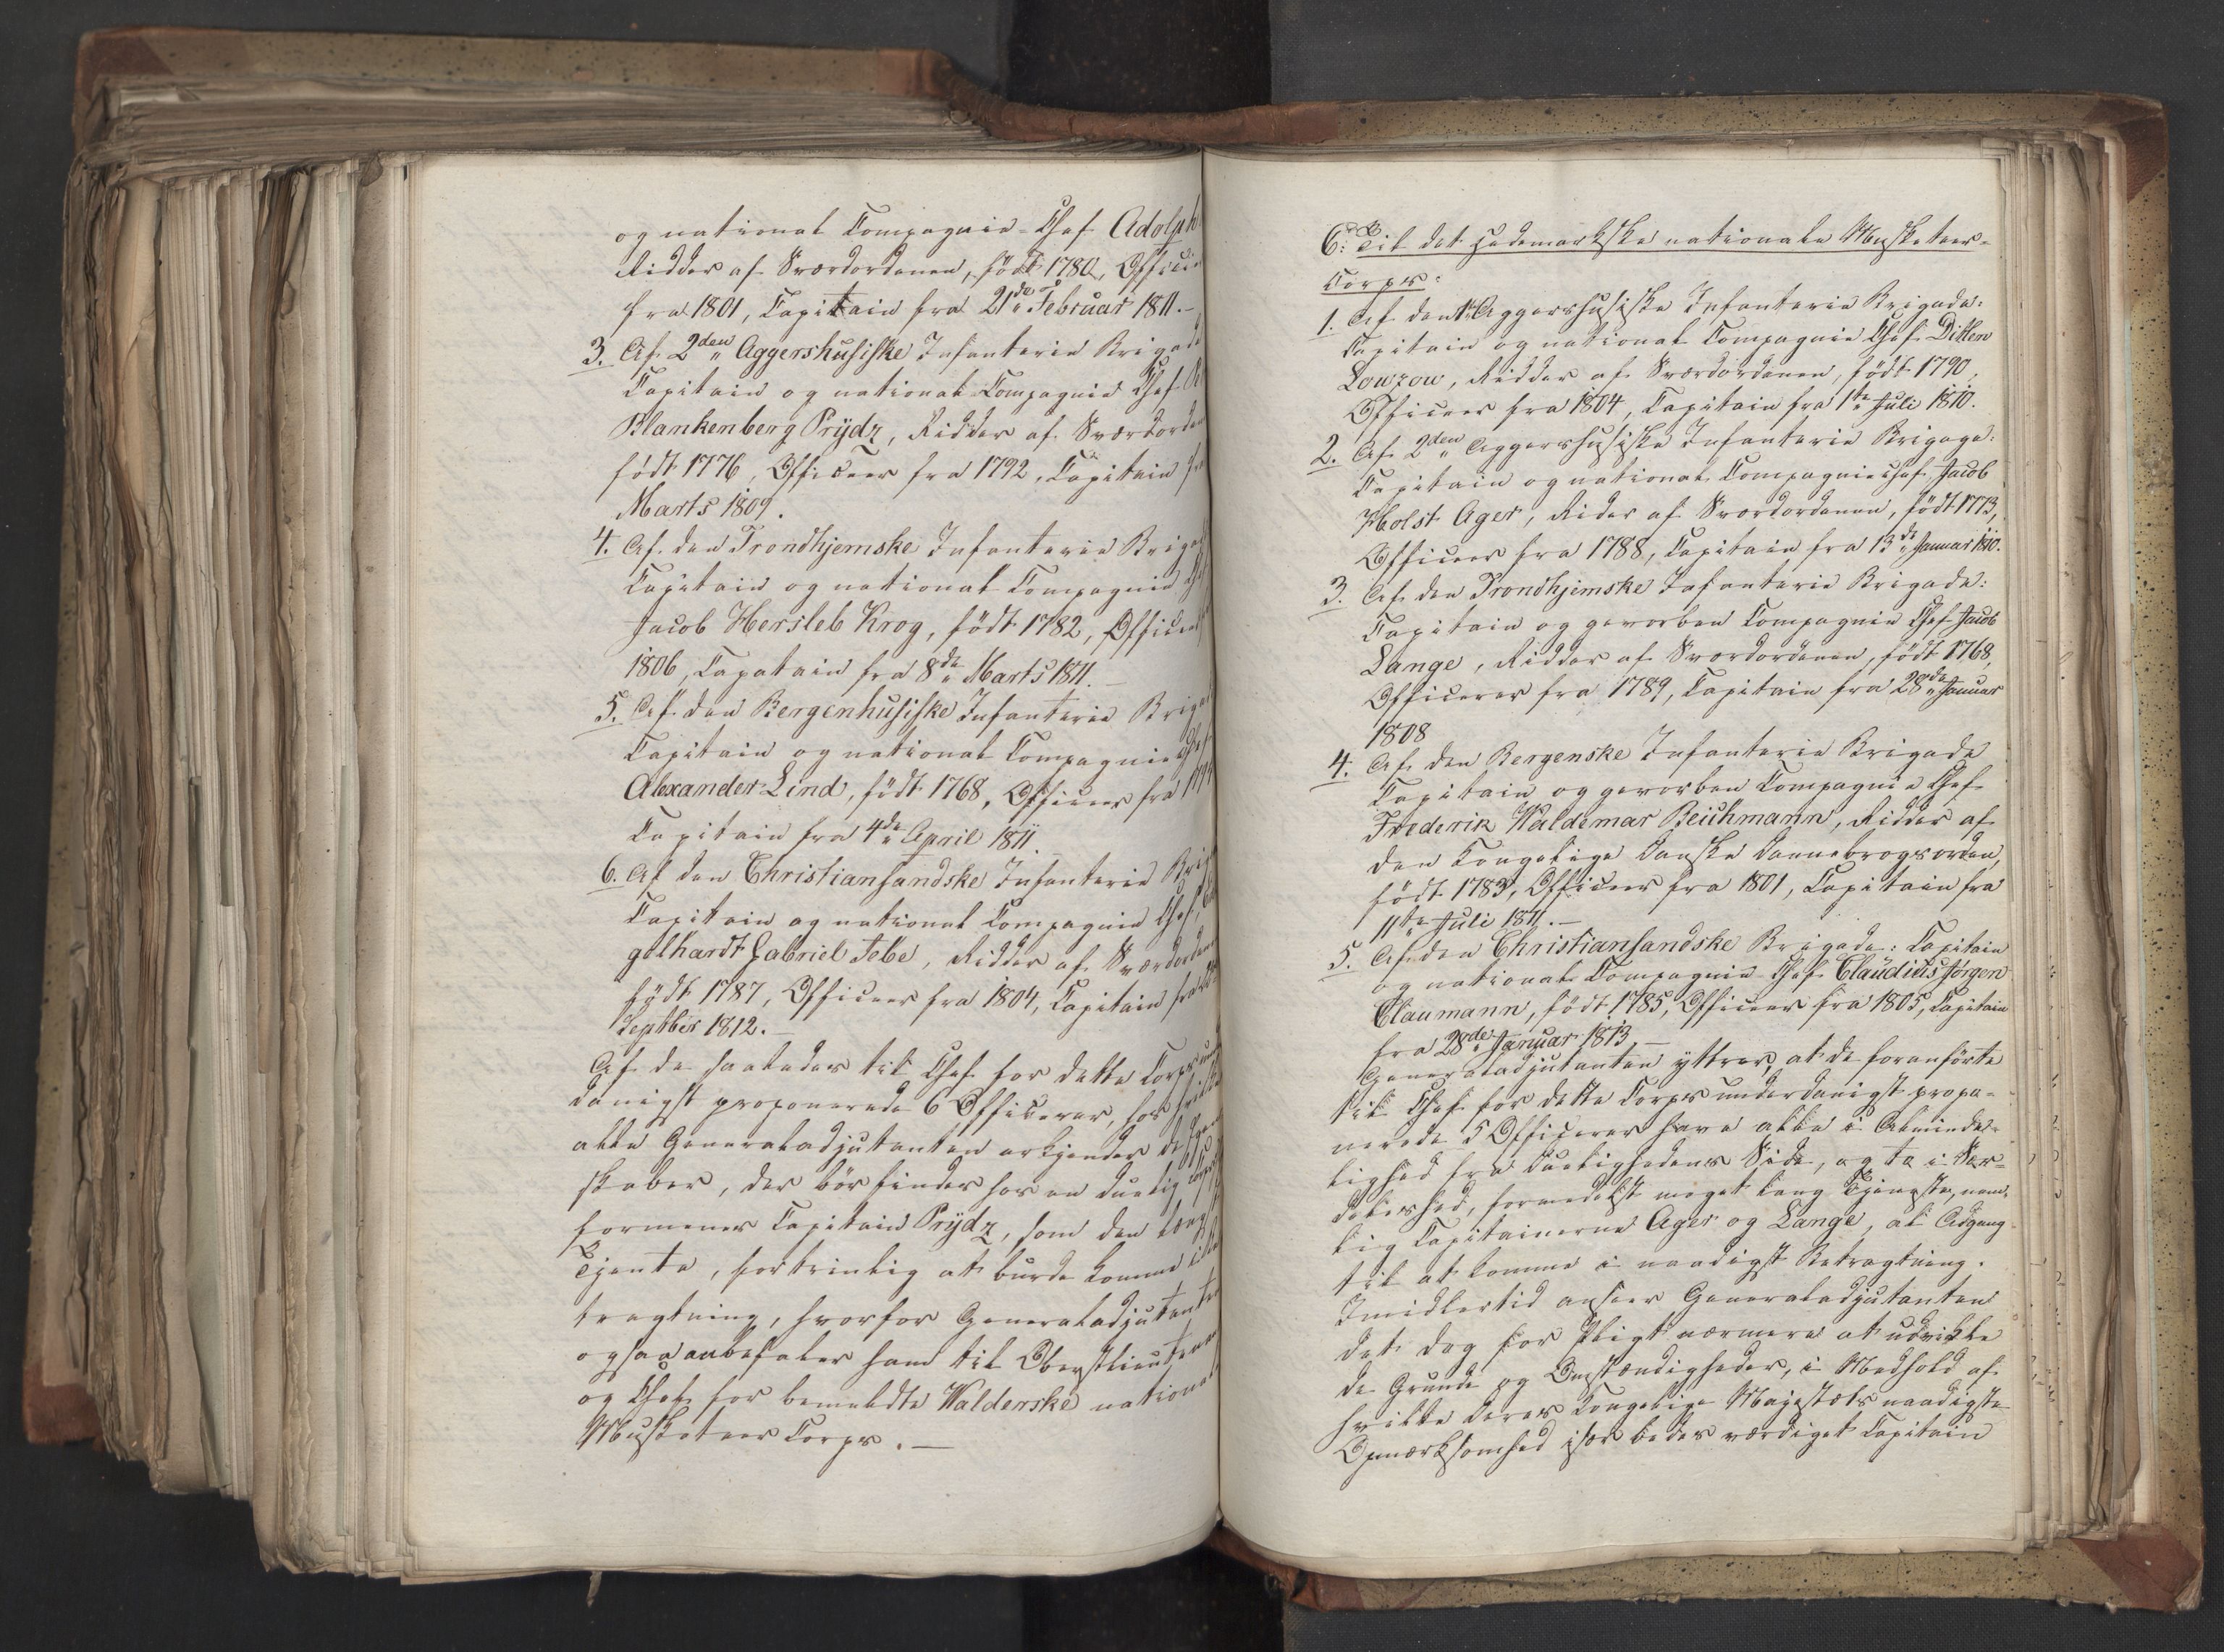 og national Compagnie-Chef Adolph
Ridder af Sværdordenen, födt 1780, Officier
fra 1801, Capitain fra 21de Februar 1811.-
3. Af 2den Aggershusiske Infanterie Brigade
Capitain og national Compagnie Chef
Blankenberg Prydz, Ridder af Sværdorden
födt 1776, Officeer fra 1792, Capitain fra
Marts 1809.
4. Af den Trondhjemske Infanterie Brigade
Capitain og national Compagnie Chef
Jacob Hersleb Krog, födt 1782, Officeer
1806, Capatain fra 8de Marts 1811.-
5. Af den Bergenhusiske Infanterie Brigade
Capitain og national Compagnie Chef
Alexander Lind, födt 1768, Officeer fra
Capitain fra 4de April 1811.-
6. Af den Christiansandske Infanterie Brig
Capitain og national Compagnie Chef
gelhardt Gabriel Tebe, Ridder af Sværdorden
födt 1787, Officeer fra 1804, Capitain fra
Septbr 1812.-
Af de saaledes til Chef for dette Corps un
danigst proponerede 6 Officerer, hos hvilke
alle Generaladjutanten erkjender de Egen
skaber, der bör findes hos en duelig
formenes Capitain Prydz, som den længst
Tjente, fortrinlig at burde komme i Be
tragtning, hvorfor Generaladjutanten
ogsaa anbefaler ham til Oberstlieutenant
og Chef for bemeldte Walderske national
Musketeer Corps.-
6. Til det Hedemarkske nationale Musketeer-
Corps:
1. Af den 1ste Aggershusiske Infanterie Brigade:
Capitain og national Compagnie Chef Ditlew
Lowzow, Ridder af Sværdordenen, födt 1790,
Officeer fra 1804, Capitain fra 1ste Juli 1810.
2. Af 2den Aggershusiske Infanterie Brigage:
Capitain og national Compagnie Chef Jacob
Holst Ager, Rider af Sværdordenen, födt 1773,
Officeer fra 1788, Capitain fra 13de Januar 1810.
3. Af den Trondhjemske Infanterie Brigade:
Capitain og gevorben Compagnie Chef Jacob
Lange, Ridder af Sværdordenen, födt 1768,
Officerer fra 1789, Capitain fra 28de Januar
1808
4. Af den Bergenske Infanterie Brigade
Capitain og gevorben Compagnie Chef
Frederik Waldemar Beichmann, Ridder af
den Kongelige Danske Dannebrogsorden,
födt 1783, Officeer fra 1801, Capitain fra
11te Juli 1811.-
5. Af den Christiansandske Brigade: Capitain
og national Compagnie Chef Claudius Jörgen
Claumann, födt 1785, Officeer fra 1805, Capitain
fra 28de Januar 1813.-
Generaladjutanten yttrer, at de foranförte
til Chef for dette Corps underdanigst propo-
nerede 5 Officerer have alle i Almindel-
lighed fra Duelighedens Side, og to i Sær-
deleshed, formedelst meget lang Tjeneste, nem-
lig Capitainerne Ager og Lange, al Adgang
til at komme i naadigst Betragtning.
Imidlertid anseer Generaladjutanten
det dog for Pligt nærmere at udvikle
de Grunde og Omstændigheder, i Medhold af
hvilke Deres Kongelige Majestæts naadigste
Opmærksomhed især bedes værdiget Capitain